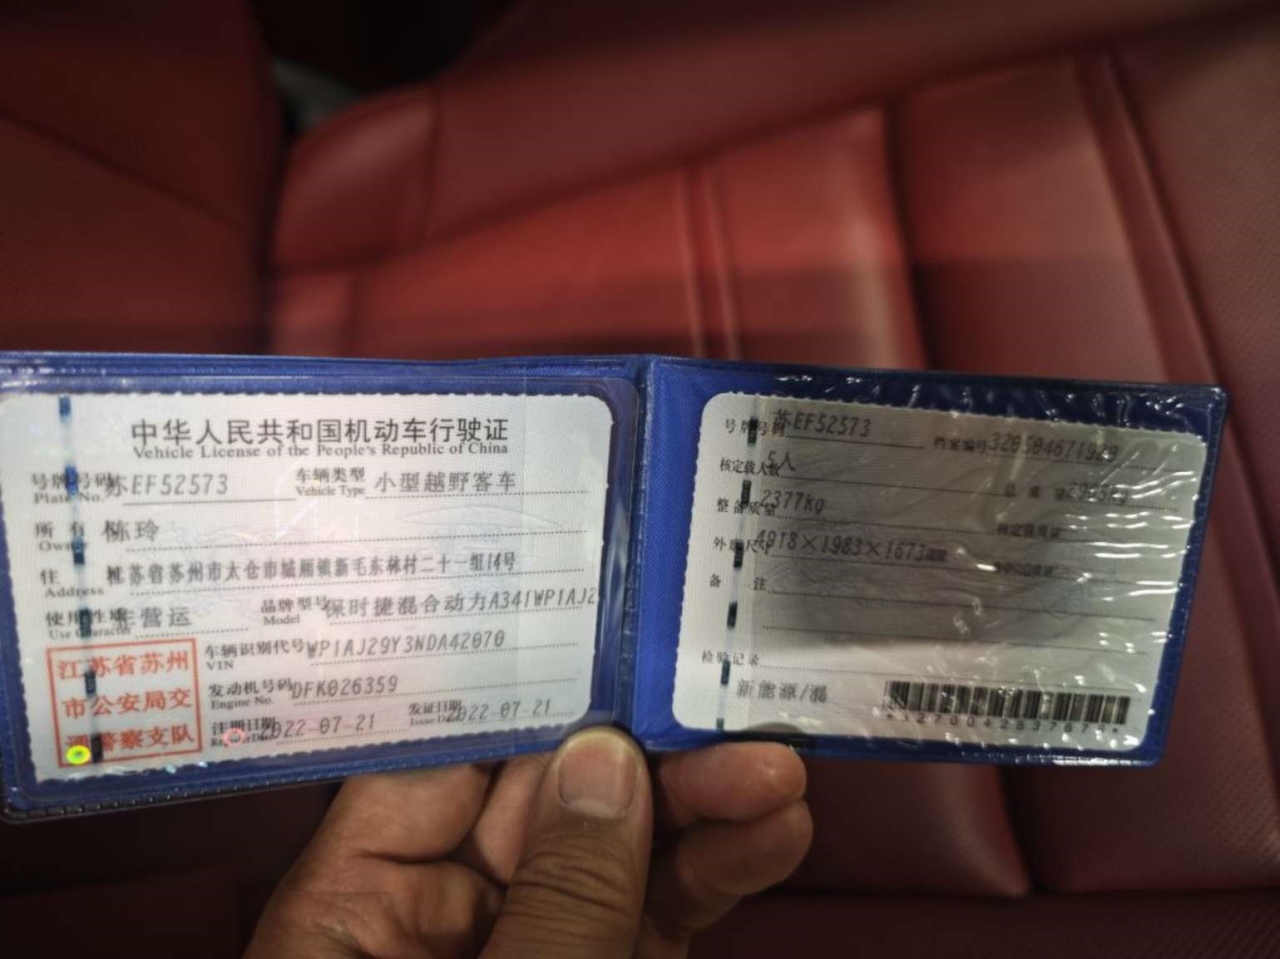 中华人民共和国机动车行驶证
Vehicle License of the People's Republic of China
号牌号码 苏EF52573 车辆类型 小型越野客车
Plate No. Vehicle Type
所有 陈玲
Owner
住 江苏省苏州市太仓市城厢镇新毛东林村二十一组14号
Address
使用性质 非营运 品牌型号 保时捷混合动力A341WP1AJ2
Use Character Model
江苏省苏州市公安局交通警察支队
车辆识别代号 WP1AJ29Y3NDA42070
VIN
发动机号码 DFK026359
Engine No.
注册日期 2022-07-21 发证日期 2022-07-21
Register Date Issue Date
号牌号码 苏EF52573 档案编号
核定载人数 5人 总质量
整备质量 2377kg 核定载质量
外廓尺寸 4918×1983×1673
备注
检验记录
新能源/混